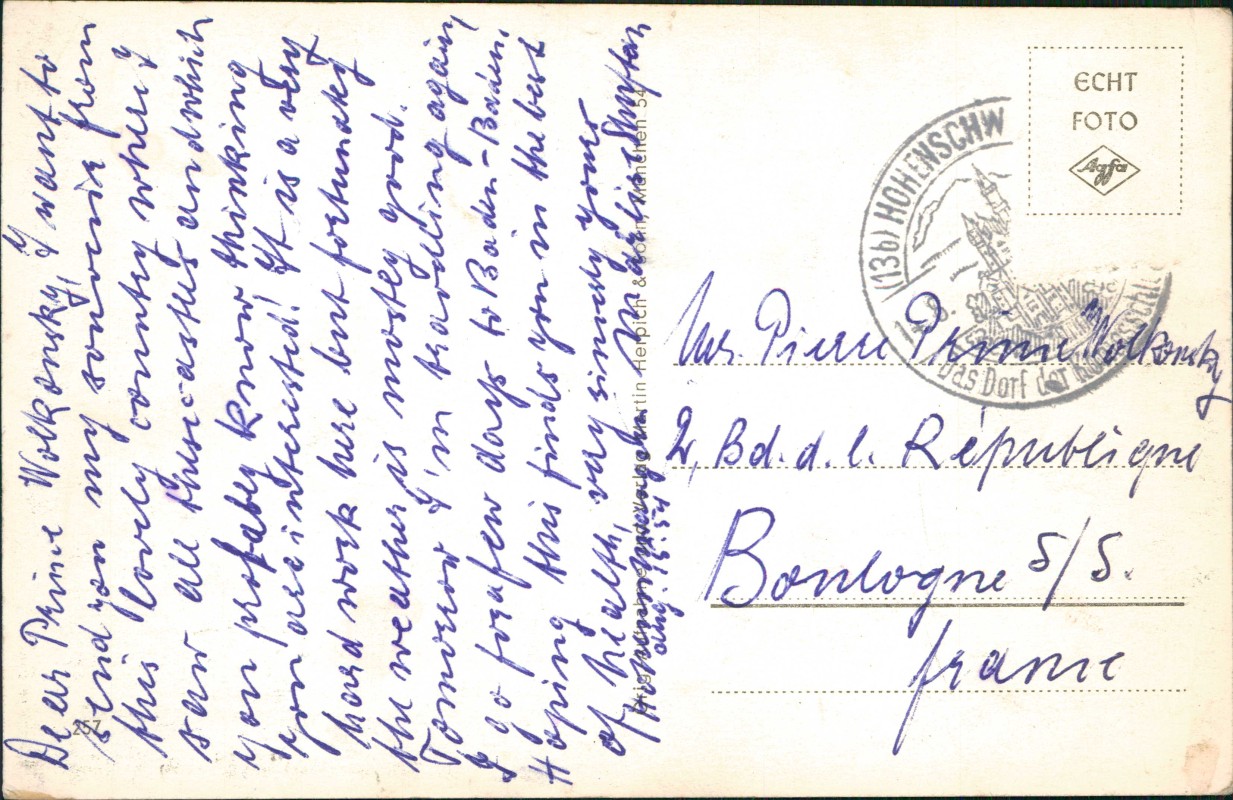 Dear Prince Wolkonsky, I want to
send you my souvenir from
this lovely country where I
saw all these castles and which
you probably know thinking
you are interested! It is a very
hard work here but fortunately
the weather is mostly good.
Tomorrow I'm travelling again,
I go for a few days to Baden-Baden.
Hoping this finds you in the best
of health, very sincerely yours
Hohenschwangau
Aug. 13. 54
257
Martin Herpich & Sohn, München 54
ECHT
FOTO
Agfa
(13b) HOHENSCHW
das Dorf der
Mr. Pierre Prince Wolkonsky
2, Bd. d. l. République
Boulogne s/S.
France